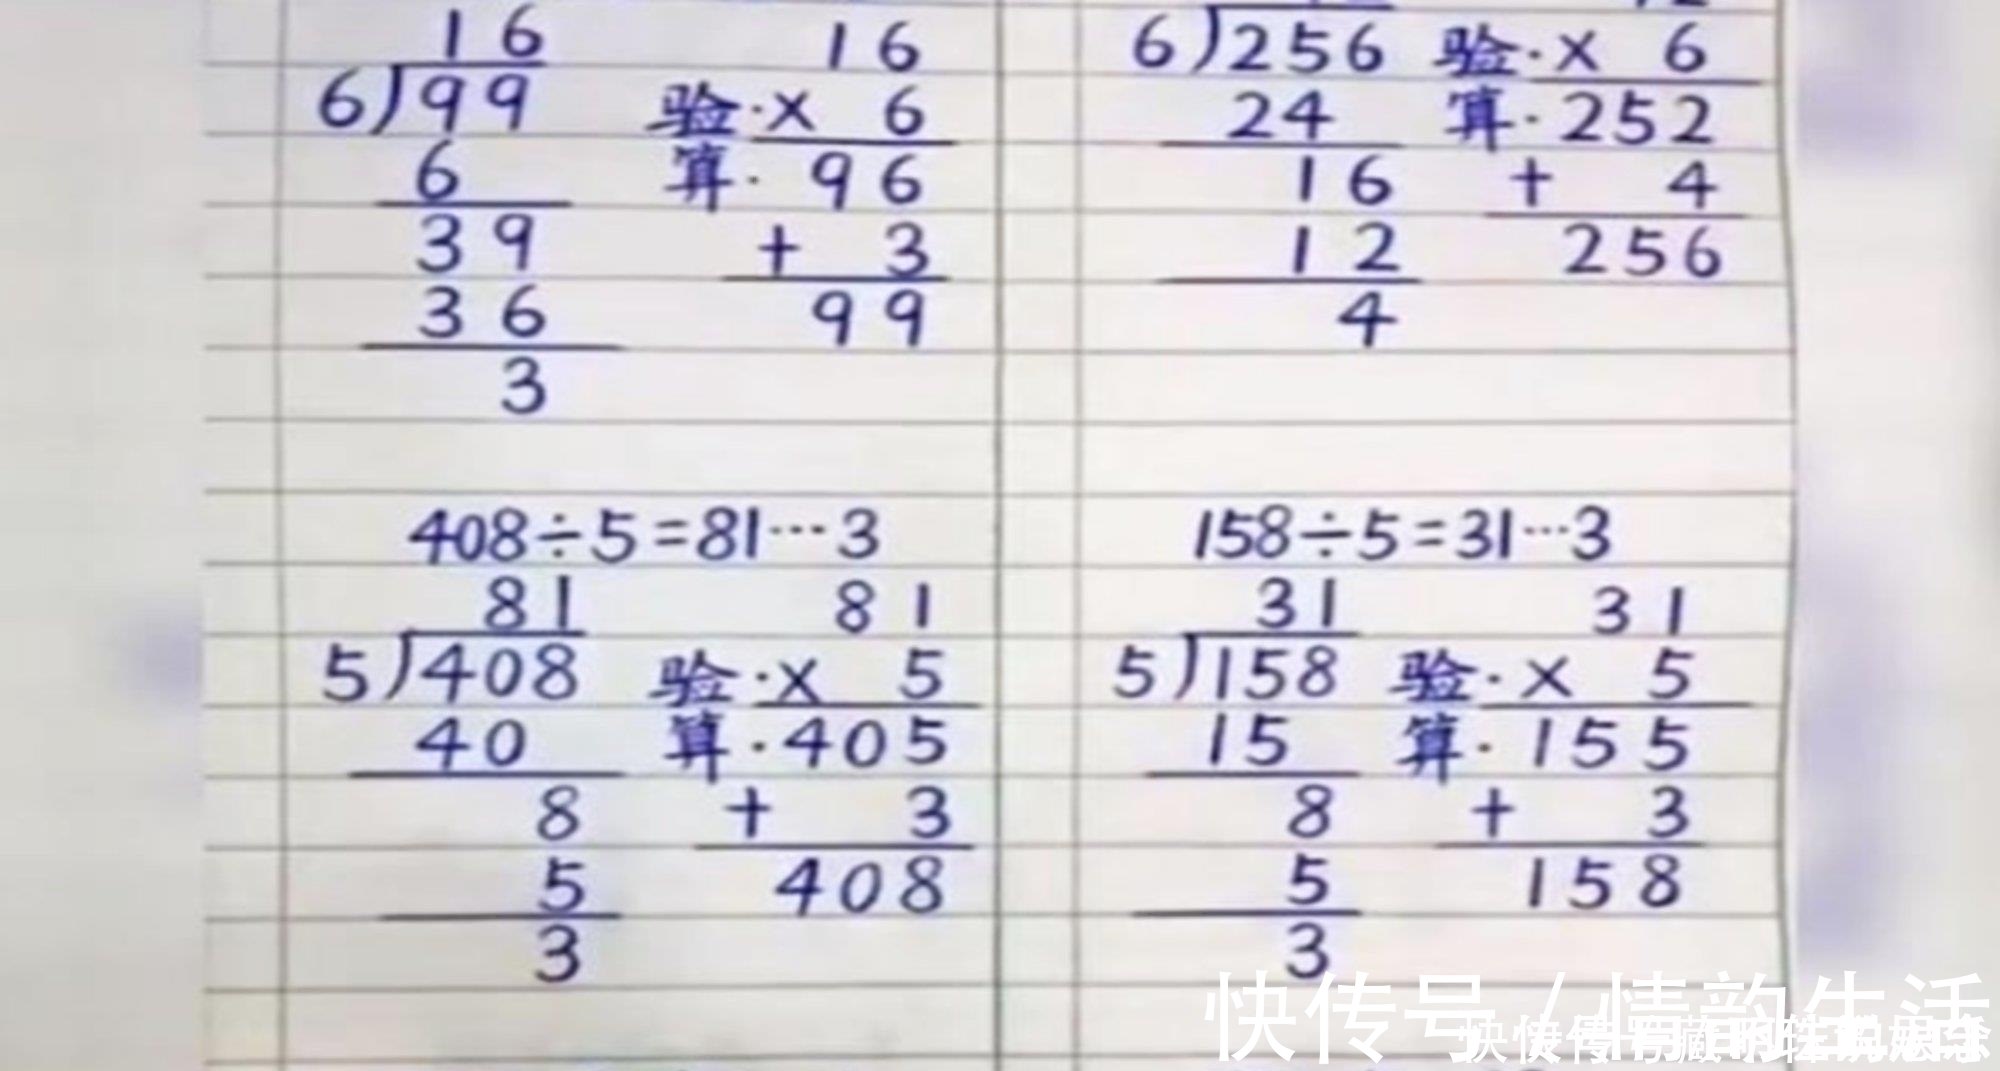 16
6)99
6
39
36
3
16
验·× 6
算· 96
+ 3
99
6)256
24
16
12
4
验·× 6
算·252
+ 4
256
408÷5=81…3
81
5)408
40
8
5
3
81
验·× 5
算·405
+ 3
408
158÷5=31…3
31
5)158
15
8
5
3
31
验·× 5
算·155
+ 3
158
快传号/情韵生活